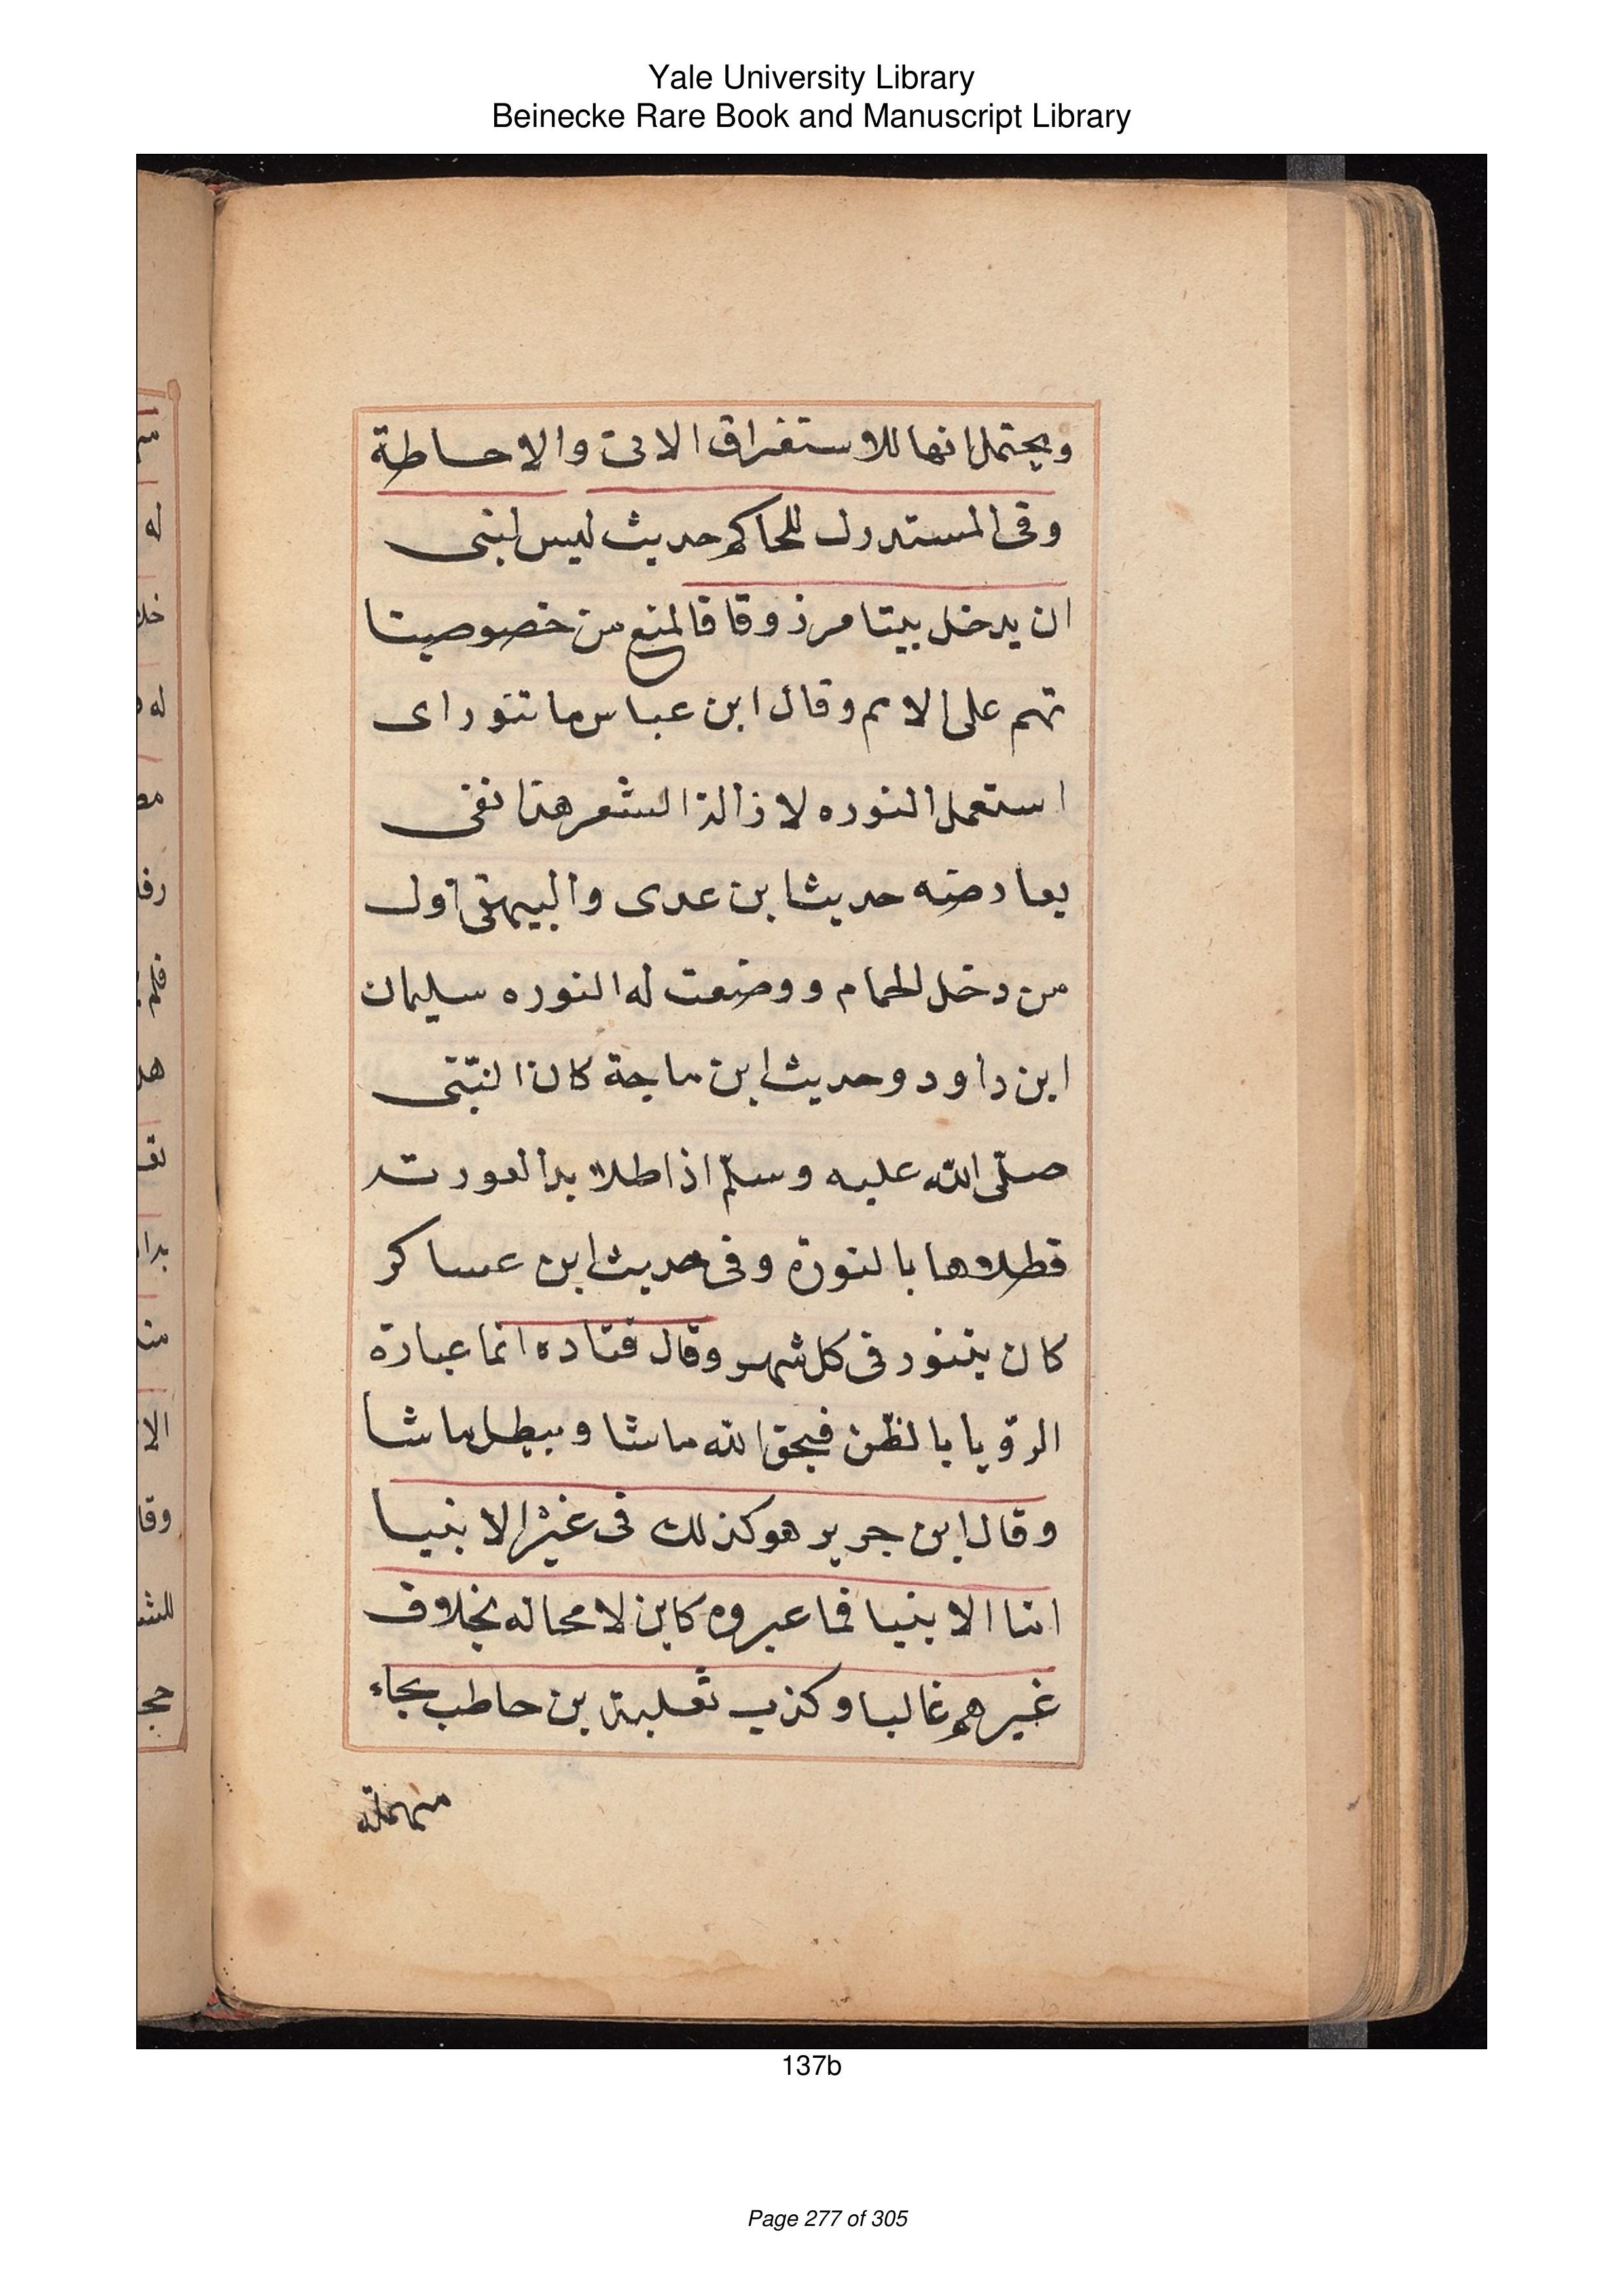 Yale University Library
Beinecke Rare Book and Manuscript Library
ويحتمل انها للاستغراق الاتى والاحاطة
وفى المستدرك للحاكم حديث ليس لنبى
ان يدخل بيتا مرذوقا فالمنع من خصوصيتا
تهم على الامم وقال ابن عباس ما تنور اى
استعمل النوره لازالة الشعر هذا نفى
يعارضه حديث ابن عدى والبيهقى اول
من دخل الحمام ووضعت له النوره سليمان
ابن داود وحديث ابن ماجة كان النبى
صلى الله عليه وسلم اذا طلا بدا لعورته
فطلاها بالنورة وفى حديث ابن عساكر
كان يتنور فى كل شهر وقال قتاده انما عبارة
الرؤيا بالظن فيحق الله ما شا ويبطل ما شا
وقال ابن جرير هو كذلك فى غير الانبيا
اما الانبيا فما عبروه كاين لا محاله بخلاف
غيرهم غالبا وكذب ثعلبة بن حاطب بحاء
مهملة
137b
Page 277 of 305